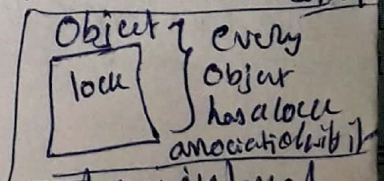 Object
lock
every
object
has a lock
association with it